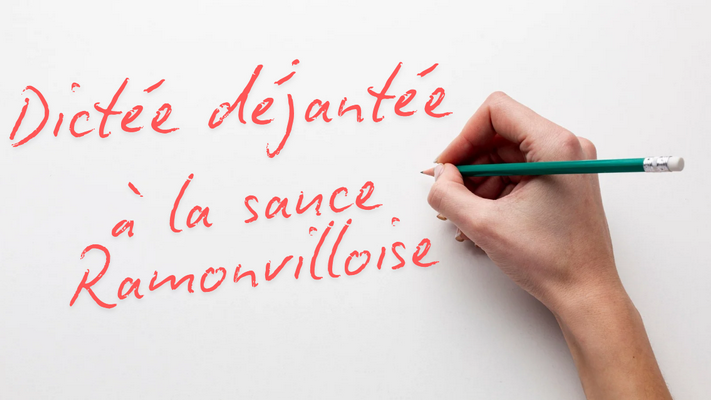 Dictée déjantée
à la sauce
Ramonvilloise